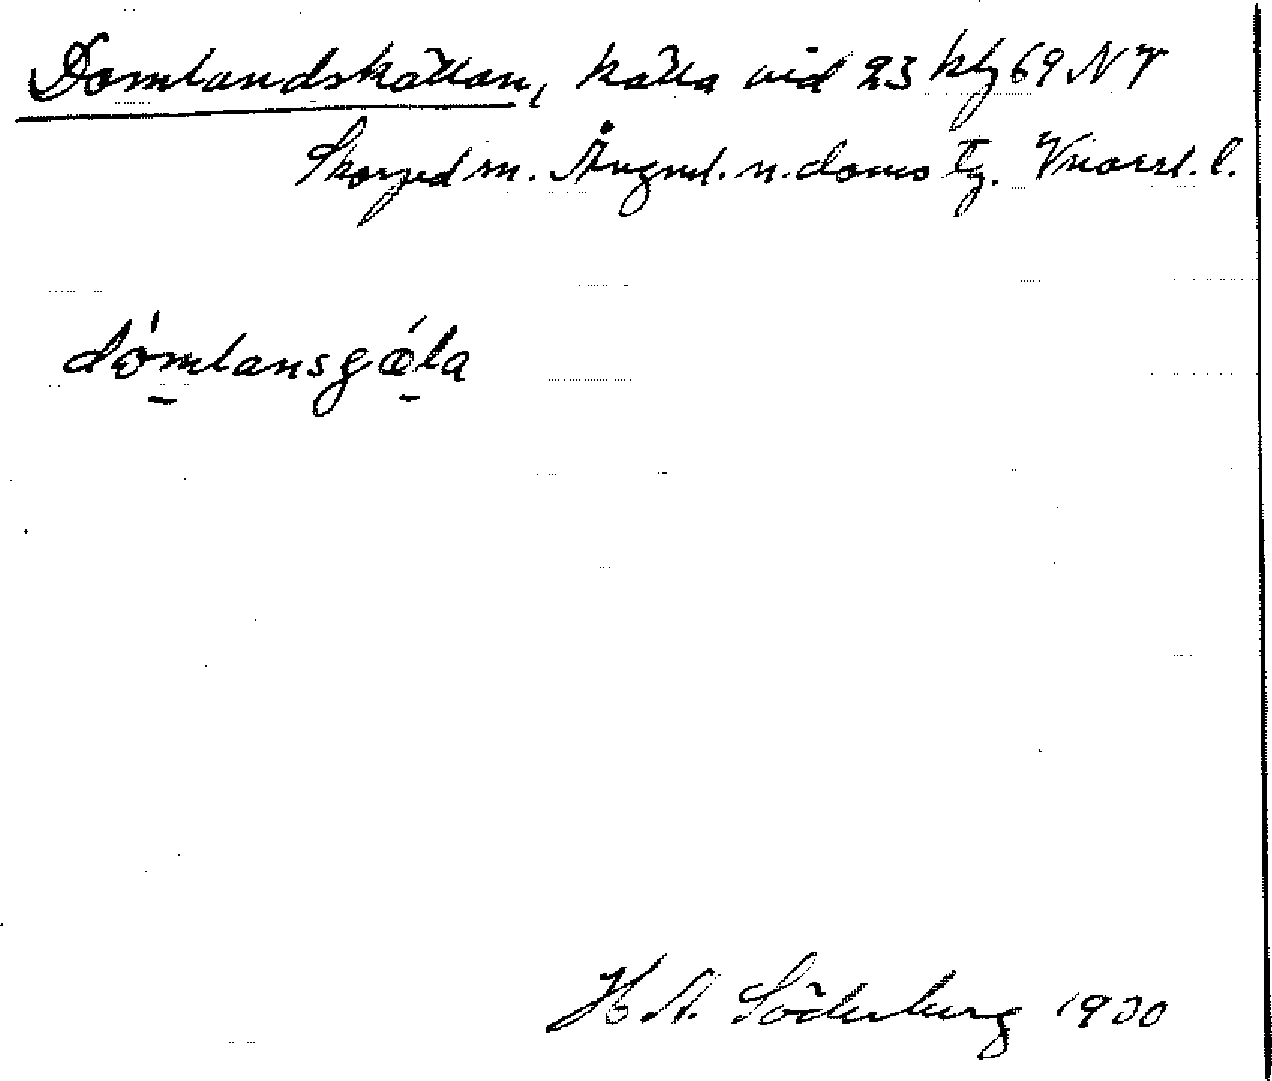 Domlandskällan, källa vid 23 klg 69 NV
Skorped sn. Ångml. n. doms tg. Vnorrl. l.
dómlansgǽla
H A. Söderberg 1930